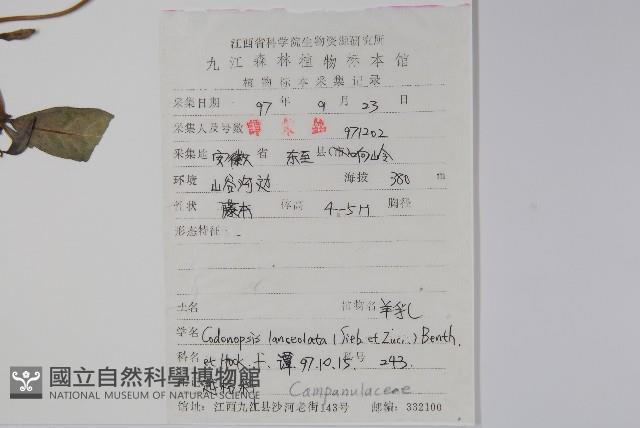 江西省科学院生物资源研究所
九江森林植物标本馆
植物标本采集记录
采集日期 97 年 9 月 23 日
采集人及号数 971202
采集地 安徽 省 东至 县(市)
环境 山谷河边 海拔 380 m
性状 藤本 体高 4-5M 胸径
形态特征:
土名 植物名 羊乳
学名 Codonopsis lanceolata (Sieb. et Zucc.) Benth.
科名 et Hook. f. 谭 97.10.15. 科号 243.
國立自然科學博物館
NATIONAL MUSEUM OF NATURAL SCIENCE
Campanulaceae
馆址:江西九江县沙河老街143号 邮编:332100